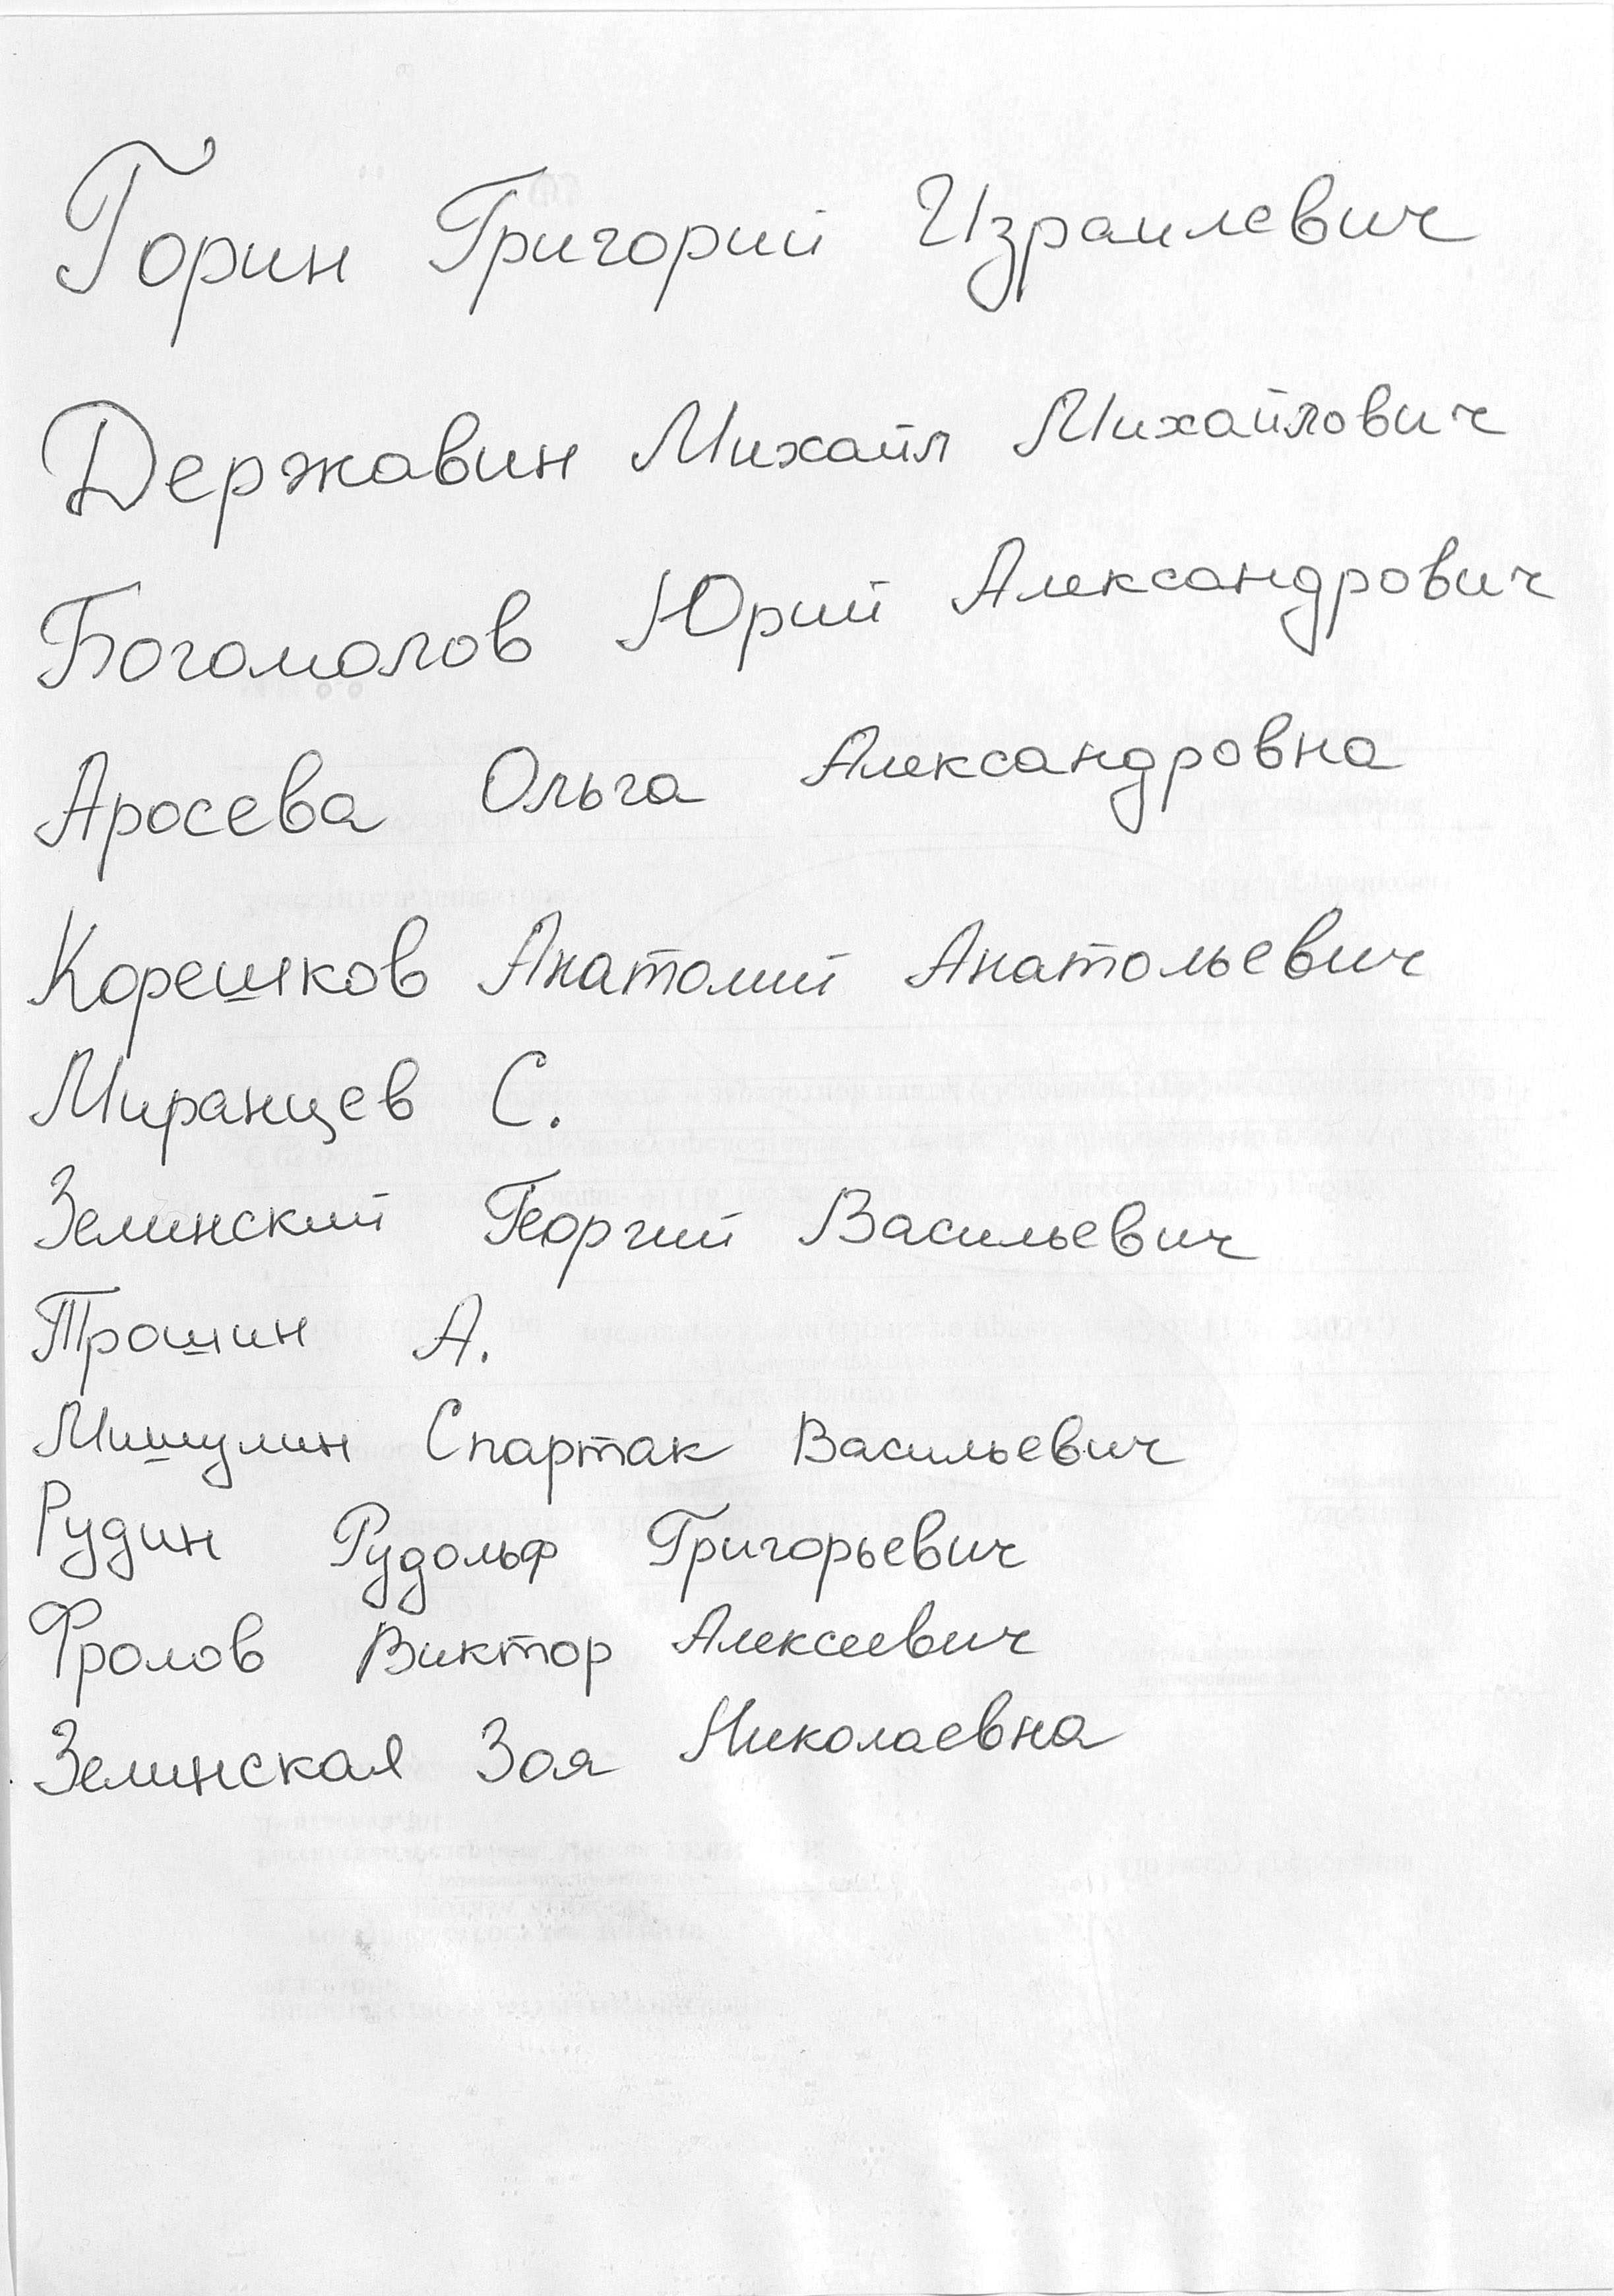 Горин Григорий Израилевич
Державин Михайл Михайлович
Богомолов Юрий Александрович
Аросева Ольга Александровна
Корешков Анатолий Анатольевич
Миранцев С.
Зелинский Георгий Васильевич
Трошин А.
Мишулин Спартак Васильевич
Рудин Рудольф Григорьевич
Фролов Виктор Алексеевич
Зелинская Зоя Николаевна